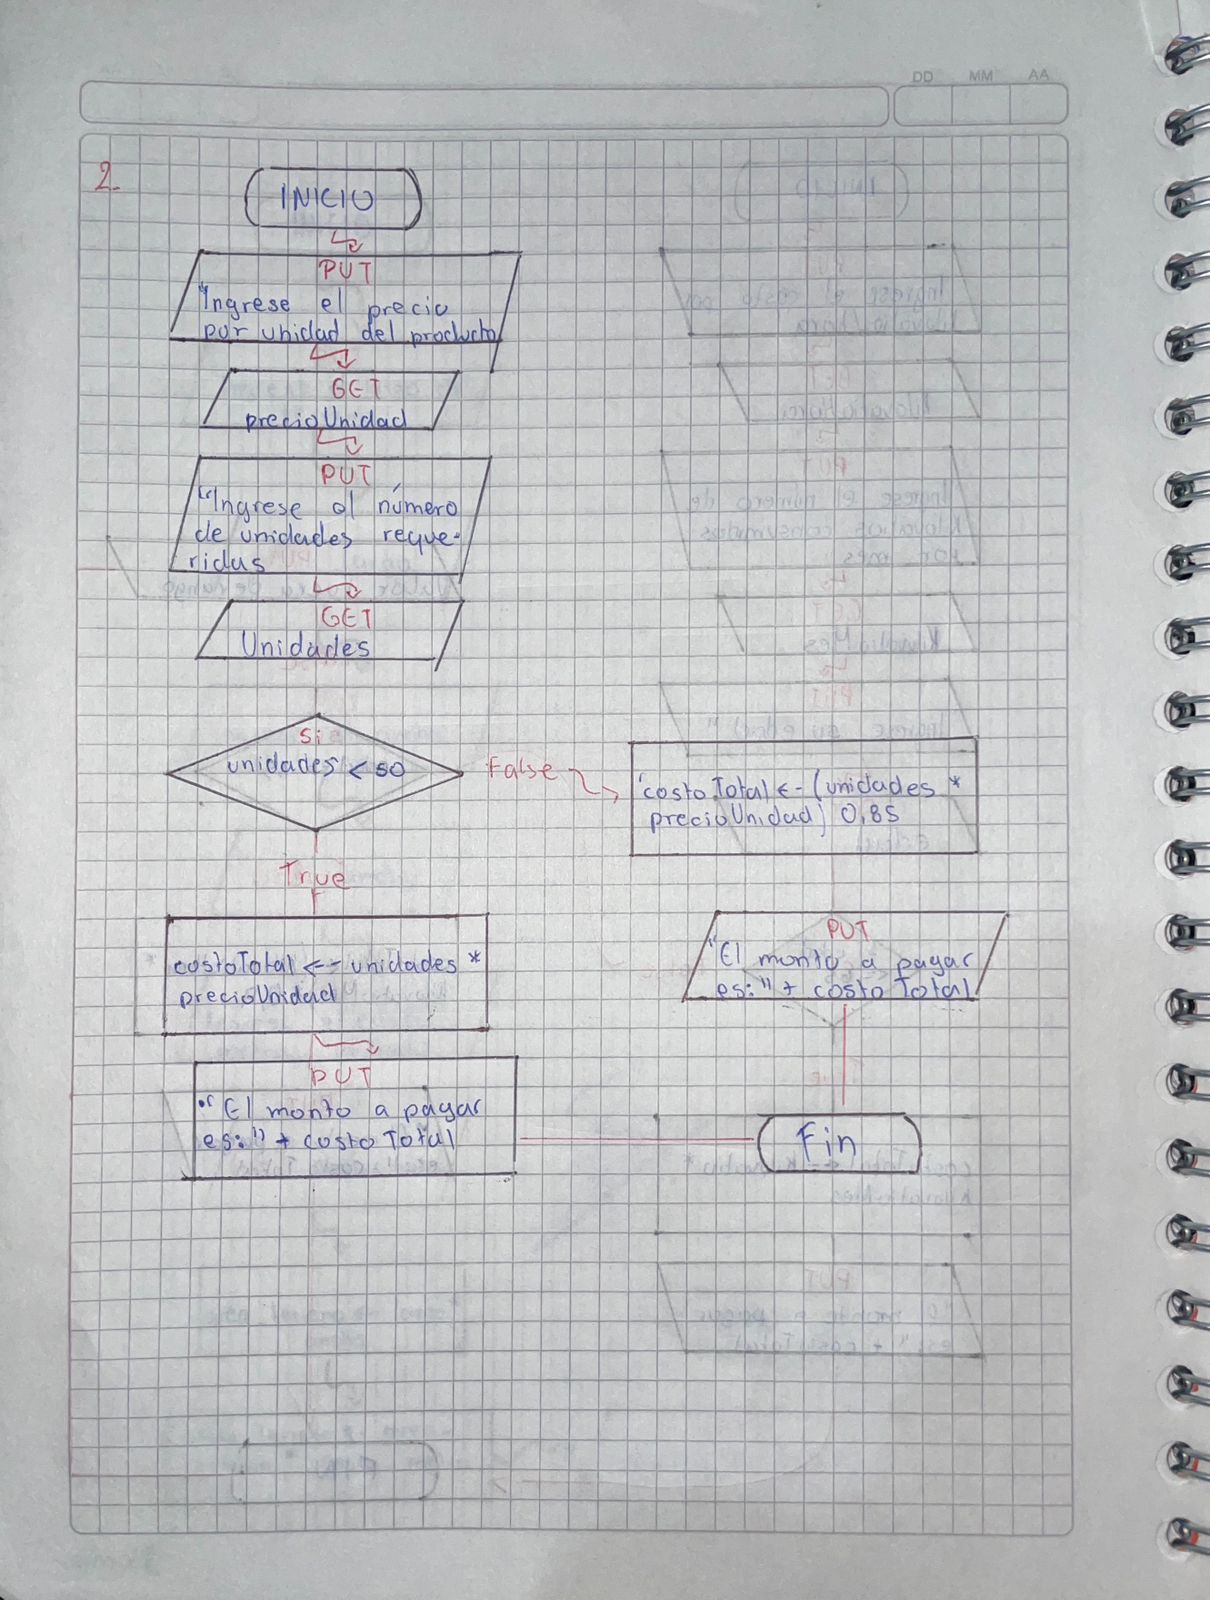 DD MM AA
2.
INICIO
PUT
"Ingrese el precio
por unidad del producto
GET
precioUnidad
PUT
"Ingrese al número
de unidades reque-
ridas
GET
Unidades
Si
unidades < 50
False
costoTotal <- (unidades *
precioUnidad) 0,85
True
costoTotal <-- unidades *
precioUnidad
PUT
"El monto a pagar
es:" + costoTotal
PUT
"El monto a pagar
es:" + costoTotal
Fin